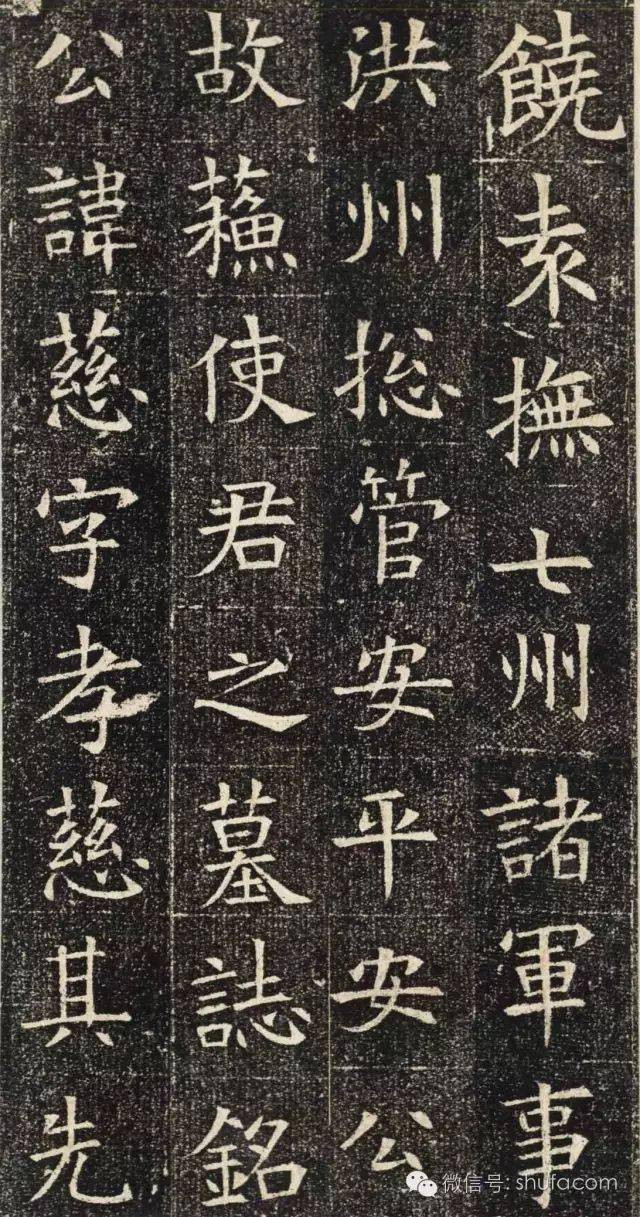 饒袁撫七州諸軍事
洪州揔管安平安公
故蘓使君之墓誌銘
公諱慈字孝慈其先
微信号: shufacom